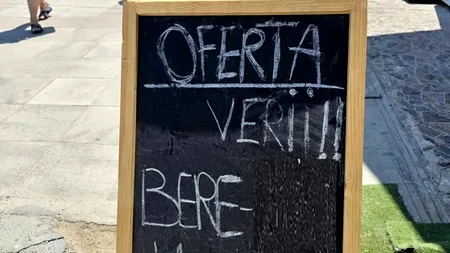 OFERTA
VERII!!!
BERE-